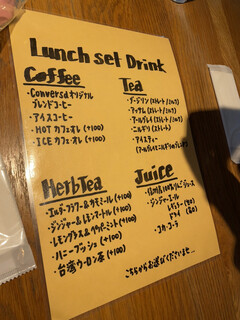 Lunch set Drink
Coffee
・Conversaオリジナル
ブレンドコーヒー
・アイスコーヒー
・HOT カフェオレ (+100)
・ICE カフェオレ (+100)
Tea
・ダージリン (ストレート/ミルク)
・アッサム (ストレート/ミルク)
・アールグレイ (ストレート/ミルク)
・ニルギリ (ストレート)
・アイスティー
HerbTea
・エルダーフラワー&カモミール (+100)
・ジンジャー&レモンマートル (+100)
・レモングラス&ペパーミント (+100)
・ハニーブッシュ (+100)
・台湾ウーロン茶 (+100)
Juice
・信州産100%りんごジュース
・ジンジャーエール
・コカ・コーラ
こちらからお選びくださいませ…